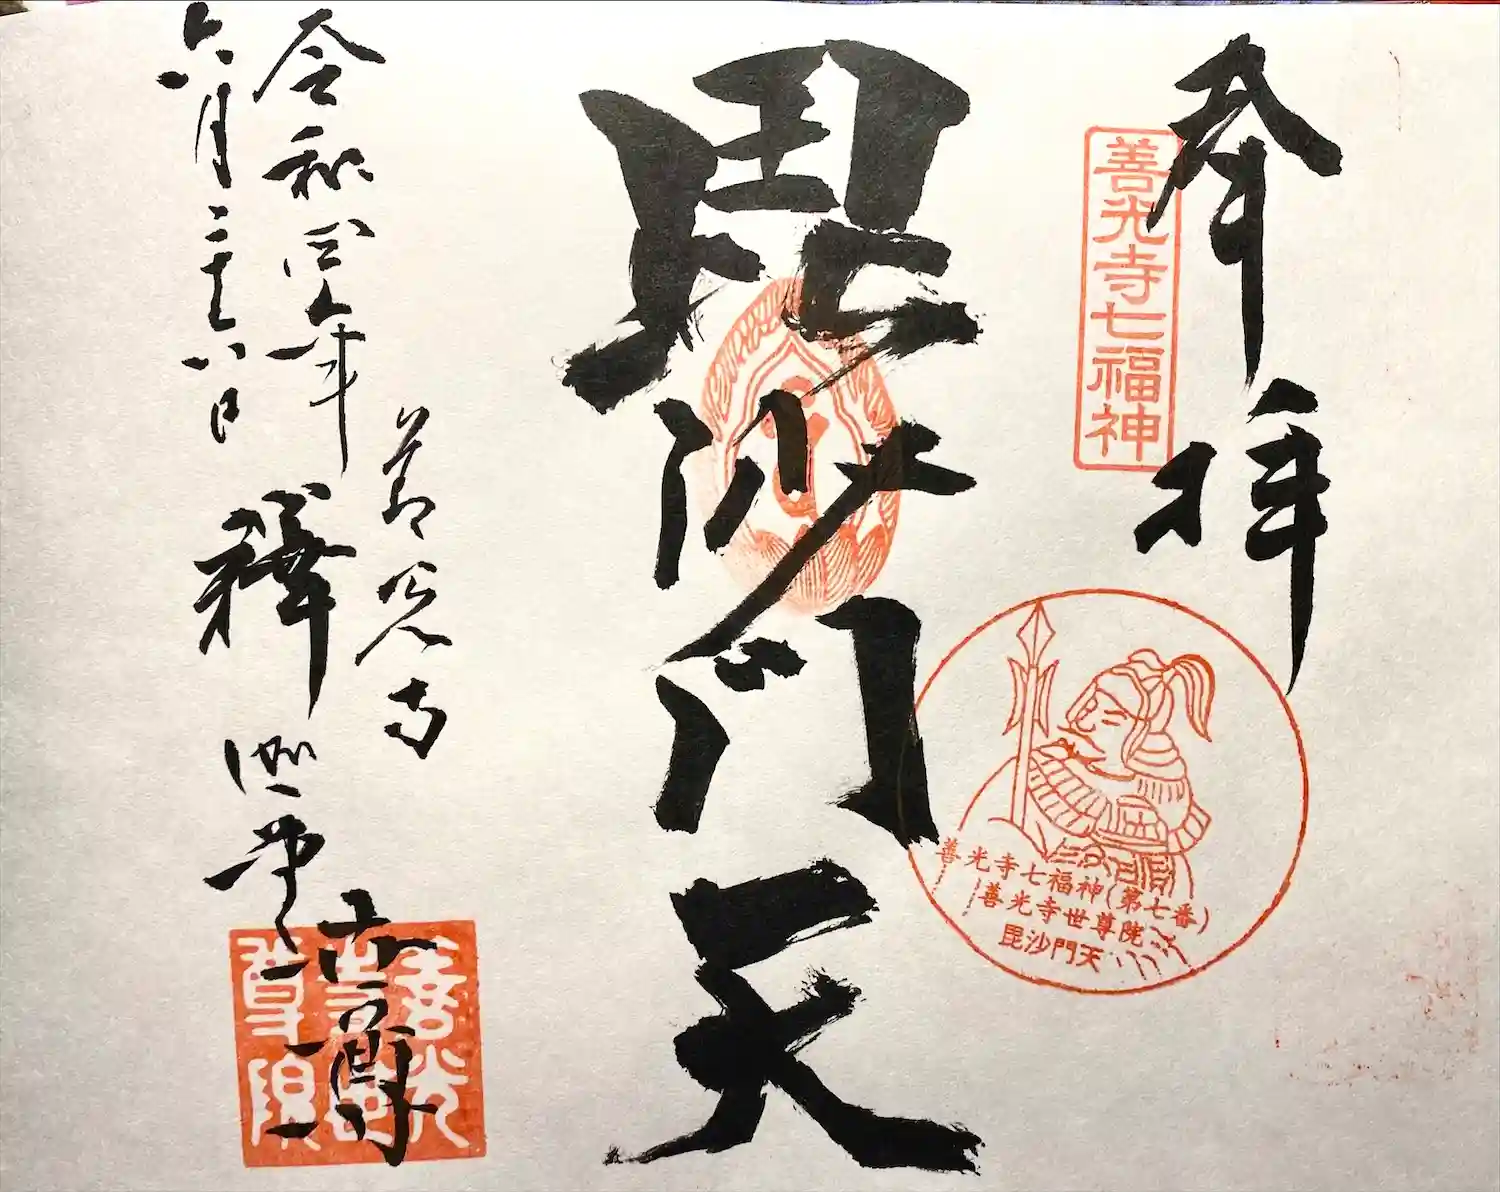 奉拝
善光寺七福神
善光寺七福神(第七番)
善光寺世尊院
毘沙門天
毘沙門天
善光寺
世尊
令和四年
釋迦堂
六月二十六日
善光
寺世
尊院